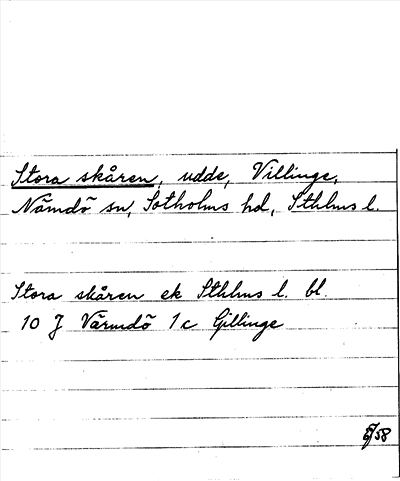 Stora skåren, udde, Villinge,
Nämdö sn, Sotholms hd, Sthlms l.
Stora skåren ek Sthlms l. bl.
10 J Värmdö 1c Gillinge
58